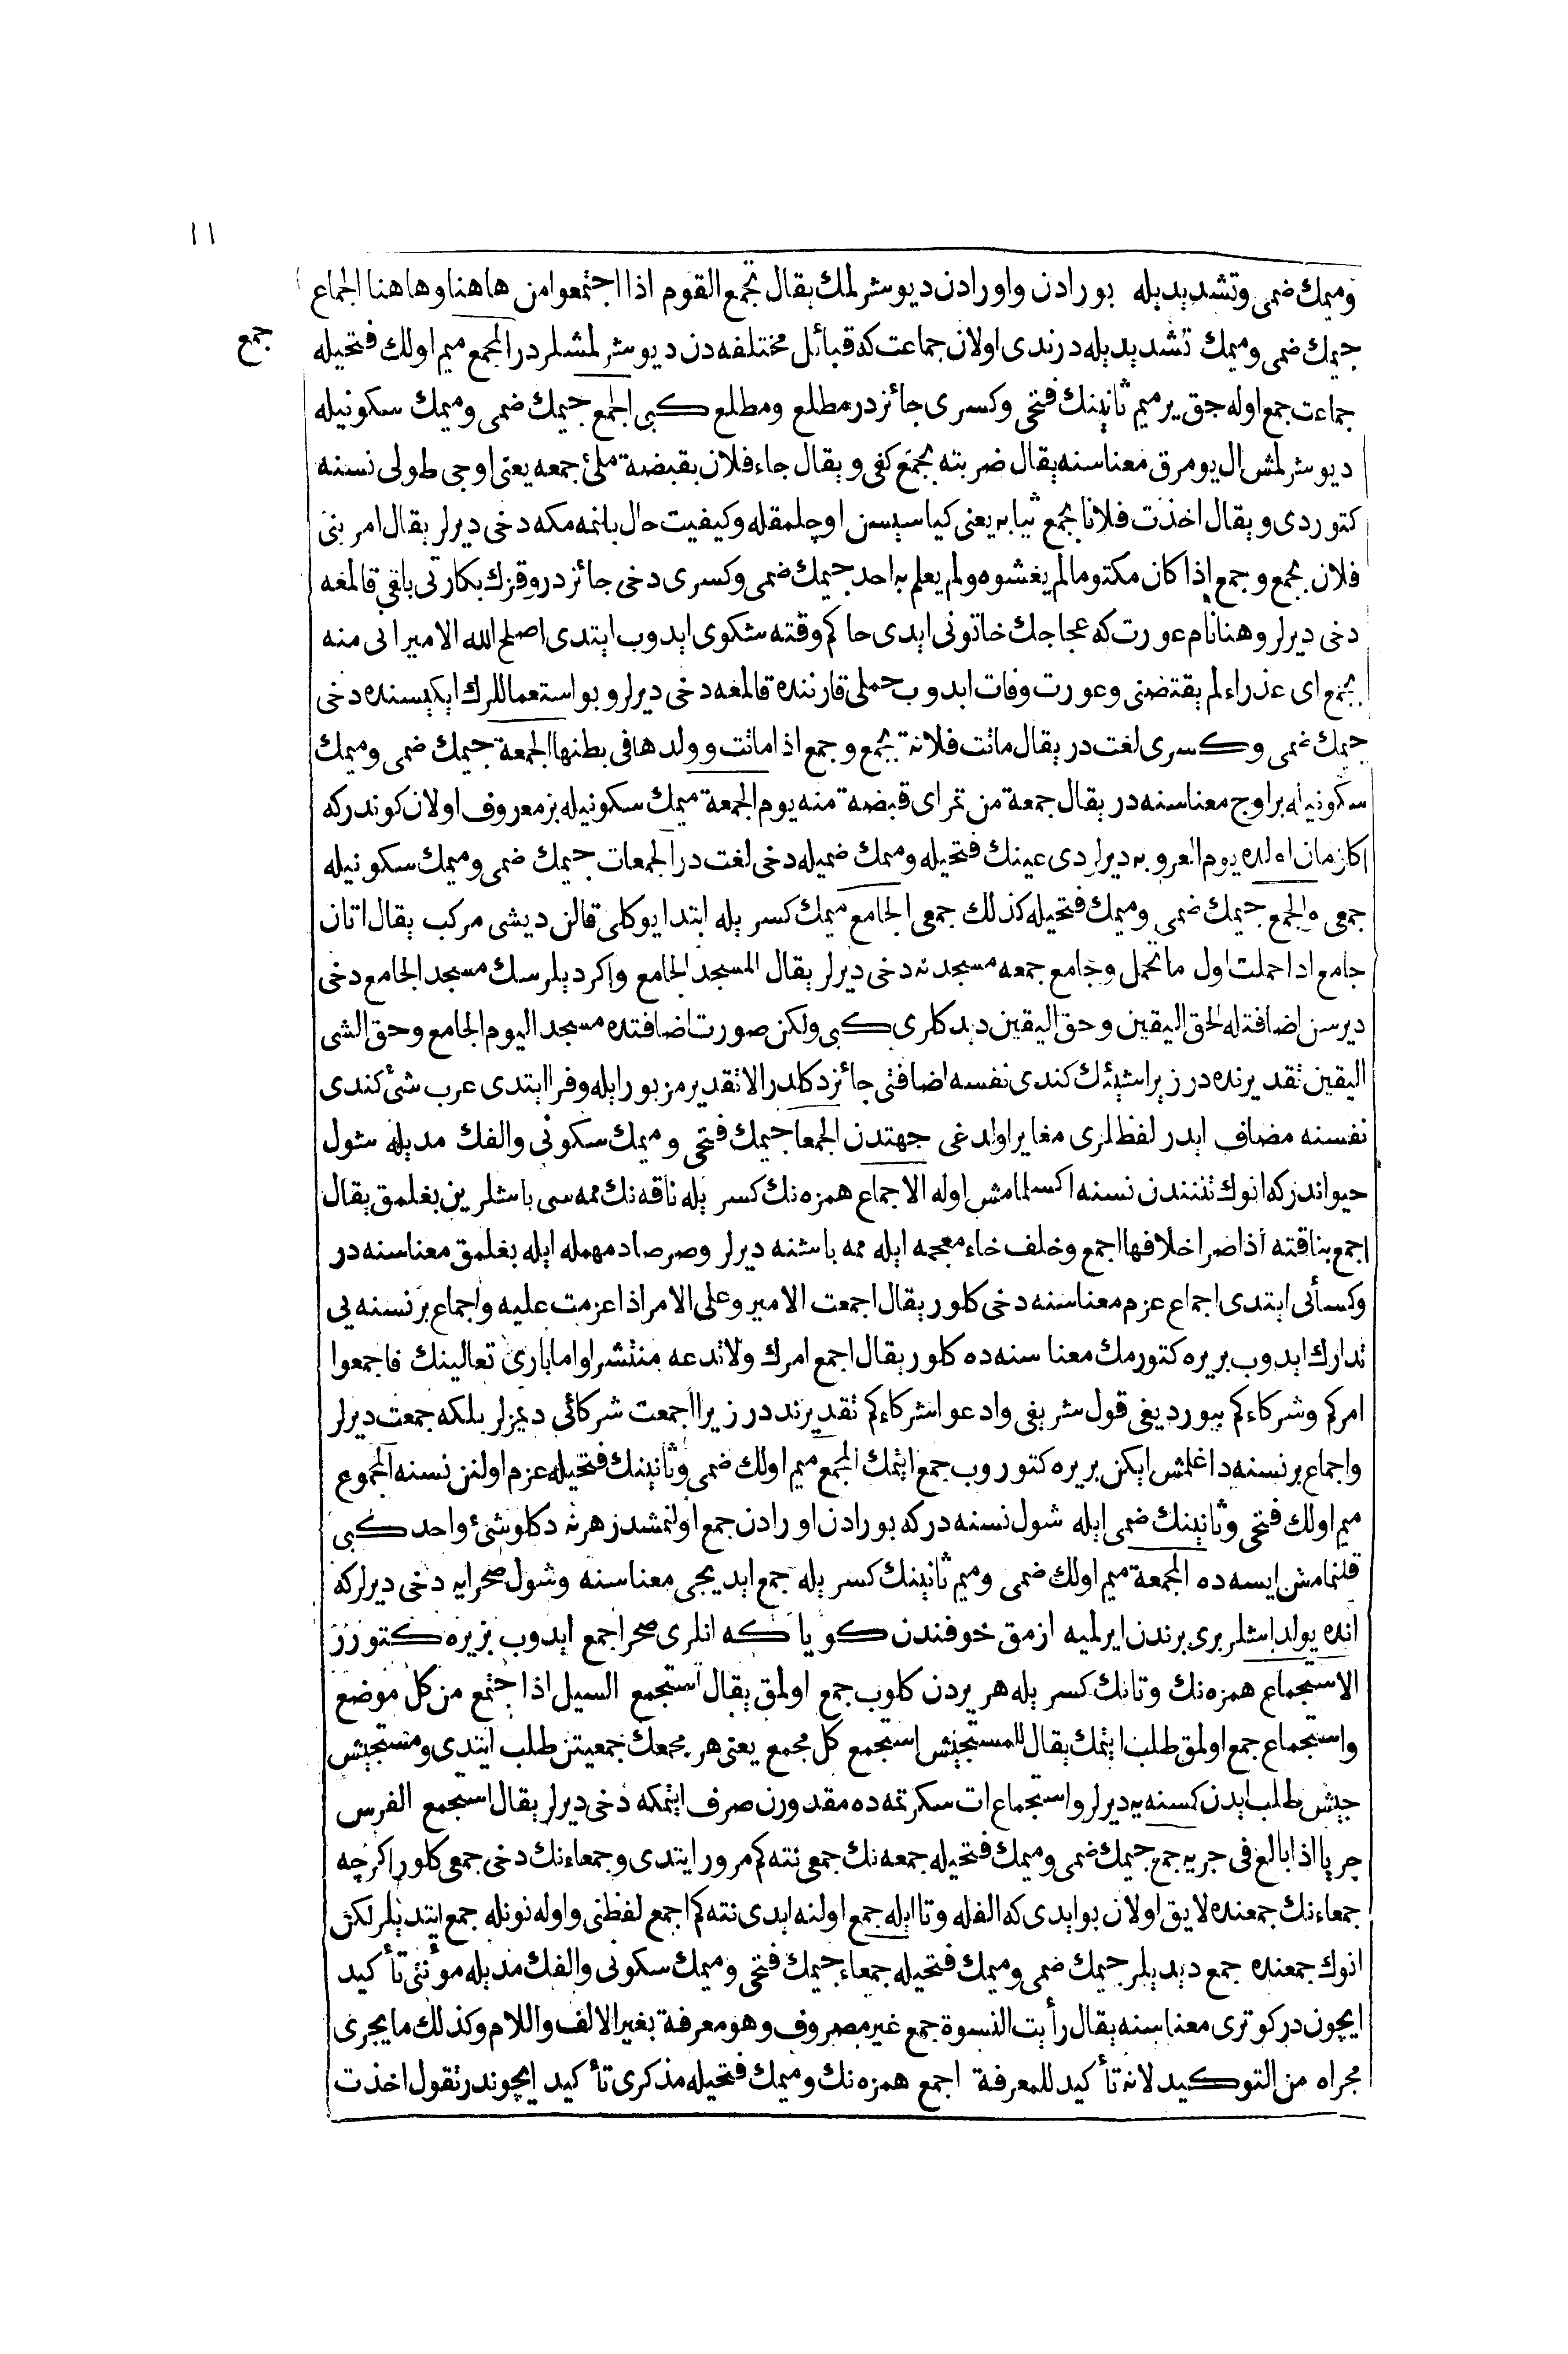 ١١
وميمك ضمى وتشديديله بورادن واورادن ديوشرلمك يقال تجمع القوم اذا اجتمعوا من هاهنا وهاهنا الجماع
جمع
جيمك ضمى وميمك تشديديله درندى اولان جماعت كه قبائل مختلفه دن ديوشرلمشلردر المجمع ميم اولك فتحيله
جماعت جمع اوله جق ير ميم ثانينك فتحى وكسرى جائزدر مطلع ومطلع كبى الجمع جيمك ضمى وميمك سكونيله
ديوشرلمش ال يومرق معناسنه يقال ضربته بجمع كفى ويقال جاء فلان بقبضة ملئ جمعه يعنى اوجى طولى نسنه
كتوردى ويقال اخذت فلانا بجمع ثيابه يعنى كياسيسن اوچلمقله وكيفيت حال بلنمه مكه دخى ديرلر يقال امر بنى
فلان بجمع وجمع اذا كان مكتوما لم يغشوه ولم يعلم به احد جيمك ضمى وكسرى دخى جائزدر وقزك بكارتى باقى قالمغه
دخى ديرلر وهنا نام عورت كه عجاجك خاتونى ايدى حاكم وقته شكوى ايدوب ايتدى اصلح الله الامير انى منه
بجمع اى عذراء لم يقتضنى وعورت وفات ايدوب حملى قارننده قالمغه دخى ديرلر وبو استعماللرك ايكيسنده دخى
جيمك ضمى وكسرى لغت در يقال ماتت فلانة بجمع وجمع اذا ماتت وولدها فى بطنها الجمعة جيمك ضمى وميمك
سكونيله براوج معناسنه در يقال جمعة من تمر اى قبضة منه يوم الجمعة ميمك سكونيله بزمعروف اولان كوندركه
اكا زمان اولده يوم العروبه ديرلردى عينك فتحيله وميمك ضميله دخى لغت در الجمعات جيمك ضمى وميمك سكونيله
جمعى والجمع جيمك ضمى وميمك فتحيله كذلك جمعى الجامع ميمك كسريله ابتدا يوكلى قالن ديشى مركب يقال اتان
جامع اذا حملت اول ما تحمل وجامع جمعه مسجدنه دخى ديرلر يقال المسجد الجامع واكر ديلرسك مسجد الجامع دخى
ديرسن اضافتله الحق اليقين وحق اليقين ديدكلرى كبى ولكن صورت اضافتده مسجد اليوم الجامع وحق الشى
اليقين تقديرنده در زيرا شيئك كندى نفسه اضافتى جائز دكلدر الا تقدير مزبورايله وفرا ايتدى عرب شئ كندى
نفسنه مضاف ايدر لفظلرى مغاير اولدغى جهتدن الجمعا جيمك فتحى وميمك سكونى والفك مديله شول
حيواندركه انوك تنندن نسنه اكسلمامش اوله الاجماع همزه نك كسريله ناقه نك ممه سى باشلرين بغلمق يقال
اجمع بناقته اذا صر اخلافها اجمع وخلف خاء معجمه ايله ممه باشنه ديرلر وصر صاد مهمله ايله بغلمق معناسنه در
وكسائى ايتدى اجماع عزم معناسنه دخى كلور يقال اجمعت الامير وعلى الامر اذا عزمت عليه واجماع برنسنه يى
تدارك ايدوب بريره كتورمك معناسنه ده كلور يقال اجمع امرك ولا تدعه منتشرا واما بارئ تعالينك فاجمعوا
امركم وشركاءكم بيورديغى قول شريفى وادعوا شركاءكم تقديرنددر زيرا اجمعت شركائى ديمزلر بلكه جمعت ديرلر
واجماع برنسنه داغلمش ايكن بريره كتوروب جمع ايتمك المجمع ميم اولك ضمى وثانينك فتحيله عزم اولنن نسنه المجموع
ميم اولك فتحى وثانينك ضمى ايله شول نسنه دركه بورادن اورادن جمع اولنمشدر هرنه دكلو شئ واحد كبى
قلنمامش ايسه ده المجمعة ميم اولك ضمى وميم ثانينك كسريله جمع ايديجى معناسنه وشول صحرايه دخى ديرلركه
انده يولداشلر برى برندن ايرلميه ازمق خوفندن كويا كه انلرى صحرا جمع ايدوب بريره كتورر
الاستجماع همزه نك وتانك كسريله هر يردن كلوب جمع اولمق يقال استجمع السيل اذا اجتمع من كل موضع
واستجماع جمع اولمق طلب ايتمك يقال للمستجيش استجمع كل مجمع يعنى هر مجمعك جمعيتن طلب ايتدى ومستجيش
جيش طلب ايدن كسنه يه ديرلر واستجماع ات سكرتمه ده مقدورن صرف ايتمكه دخى ديرلر يقال استجمع الفرس
جريا اذا بالغ فى جريه جمع جيمك ضمى وميمك فتحيله جمعه نك جمعى نته كم مرور ايتدى وجمعاءنك دخى جمعى كلور اكرچه
جمعاءنك جمعنده لايق اولان بوايدى كه الفله وتا ايله جمع اولنه ايدى نته كم اجمع لفظنى واوله نونله جمع ايتديلر لكن
انوك جمعنده جمع ديديلر جيمك ضمى وميمك فتحيله جمعاء جيمك فتحى وميمك سكونى والفك مديله مؤنثى تأكيد
ايچون در كوترى معناسنه يقال رأيت النسوة جمع غير مصروف وهو معرفة بغير الالف واللام وكذلك ما يجرى
مجراه من التوكيد لانه تأكيد للمعرفة اجمع همزه نك وميمك فتحيله مذكرى تأكيد ايچوندر تقول اخذت